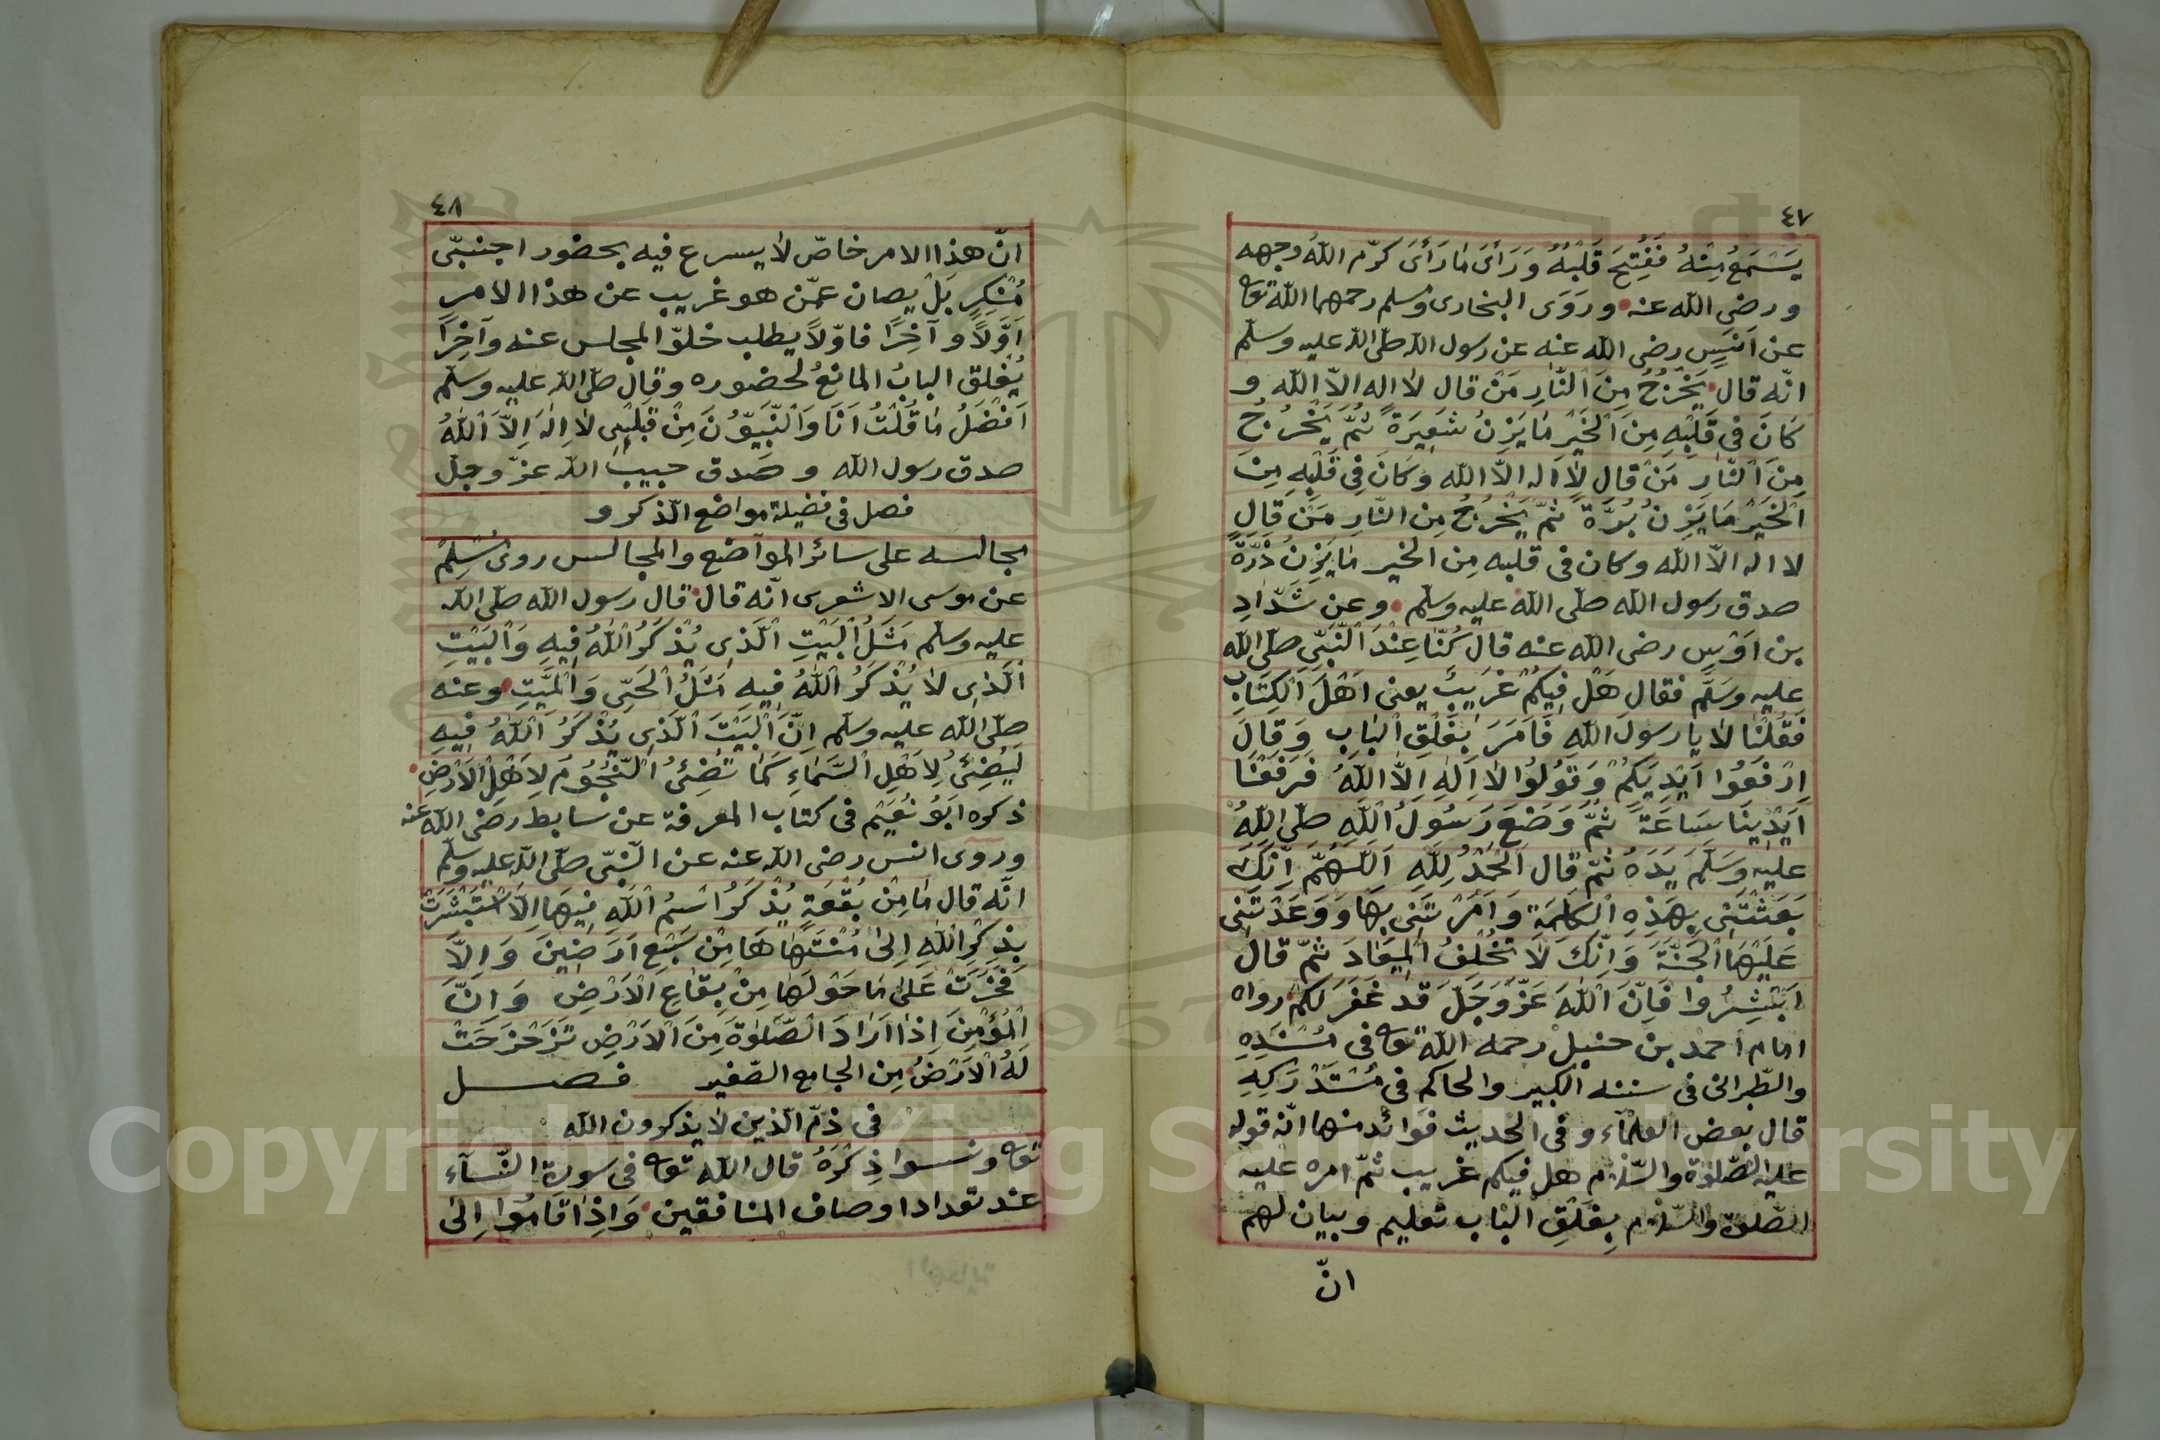 ٤٧
يَسْمَعُ مِنْهُ فَفُتِحَ قَلْبُهُ وَرَأَىَ مَا رَأَىَ كرّم اللهُ وجهه
ورضى الله عنه وروَى البخارى ومسلم رحمهما الله تعا
عن اَنَسٍ رضى الله عنه عن رسول الله صلّى الله عليه وسلّم
انّه قال يَخْرُجُ مِنَ ٱلنَّارِ مَنْ قال لا اله الاّ الله و
كَانَ فِى قَلْبِهِ مِنَ ٱلْخَيْرِ مَا يَزِنُ شَعِيَرَةً ثُمَّ يَخْرُجُ
مِنَ ٱلنَّارِ مَنْ قال لا اله الاّ الله وكَانَ فِى قَلْبِهِ مِنَ
ٱلْخَيْرِ مَا يَزِنُ بُرَّةً ثمّ يَخْرُجُ مِن النّارِ مَنْ قال
لا اله الاّ الله وكان فى قلبه مِن الخير مَا يَزِنُ ذُرَّةً
صدق رسول الله صلّى الله عليه وسلّم وعن شَدَّادِ
بن اَوْسٍ رضى الله عنه قال كُنَّا عِنْدَ ٱلنَّبِّىِ صلّى الله
عليه وسَلَّم فقال هَلْ فِيكُمْ غَرِيَبٌ يعنى اَهْلَ ٱلْكِتَابِ
فَقُلْنَا لا يا رسولَ الله فَاَمَرَ بِغَلْقِ ٱلْبَابِ وَقَالَ
اِرْفَعُوا اَيْدِيَكُمْ وَقُولُوا لا اِلٰهِ اِلاَّ اللهُ فَرَفَعْنَا
اَيْدِينَا سَاعَةً ثُمَّ وَضَعَ رَسُولُ ٱللهِ صلّى اللهُ
عليه وسَلَّمَ يَدَهُ ثمّ قال اَلْحَمْدُ لِلهِ اَللّهُمَّ اِنَّكَ
بَعَثْتَنِى بِهَذِهِ ٱلْكَلِمَةِ وَاَمَرْتَنِى بِهَا وَوَعَدْتَنِى
عَلَيْهَا ٱلْجَنَّةَ وَاِنَّكَ لاَ تُخْلِفُ ٱلْمِيَعَادَ ثمّ قال
اَبْشِرُوا فَاِنَّ ٱللهَ عَزَّ وَجَلّ قد غَفَرَ لكم رواه
امام احمد بن حنبل رحمه الله تعا فى مُسْنَدِهِ
والطّبرانى فى سننه الكبير والحاكم فى مُسْتَدْرَكِهِ
قال بعض العلمآء وفى الحديث فوائد منها انّه قوله
عليه الصّلوة والسّلام هل فيكم غريب ثمّ امره عليه
الصّلوة والسّلام بِغَلْقِ البَاب تعليم وبيان لهم
انّ
٤٨
انّ هذا الامر خاصّ لا يسرع فيه بحضور اجنبّى
مُنْكِرٍ بَلْ يصان عمّن هو غريب عن هذا الامر
اَوَّلاً وَ آخِرًا فاوّلاً يطلب خلوّ المجلس عنه وآخِرًا
يُغْلَق البابُ المانعُ لحضوره وقال صلّى الله عليه وسلّم
اَفْضَلُ مَا قُلْتُ اَنَا وَٱلنَّبِيّوُنَ مِنْ قَبْلِى لا اِلٰهَ اِلاَّ ٱللهُ
صدق رسول الله و صَدق حبيب الله عزّ وجلّ
فصل فى فضيلة مواضع الذّكر و
مجالسه على سائر المواضع والمجالس روى مُسْلِمٌ
عن موسى الاشعرى انّه قال قال رسول الله صلّى الله
عليه وسلّم مَثَلُ ٱلْبَيْتِ ٱلَّذِى يُذْكَرُ ٱللهُ فِيهِ وَٱلْبَيْتِ
ٱلَّذِى لا يُذْكَرُ ٱللهُ فِيهِ مَثَلُ ٱلْحَىِّ وَٱلْمَيِّتِ وعنه
صلّى الله عليه وسلّم اِنَّ ٱلْبَيْتَ ٱلَّذِى يُذْكَرُ ٱللهُ فِيهِ
لَيُضِئُ لِاَهْلِ ٱلسَّمَاءِ كَمَا تُضِئُ ٱلنُّجُومُ لِاَهْلِ ٱلْاَرْضِ
ذكره اَبُو نُعَيْم فى كتاب المعرفة عن سابط رضى الله عنه
وروى انس رضى الله عنه عن النّبّى صلّى الله عليه وسلّم
انّه قال مَا مِنْ بُقْعَةٍ يُذْكَرُ اسْمُ ٱللهِ فِيهَا اِلاَّ اسْتَبْشَرَتْ
بِذِكْرِ ٱللهِ اِلىٰ مُنْتَهَاهَا مِنْ سَبْعِ اَرَضِينَ وَاِلاَّ
فَخَرَتْ عَلىٰ مَا حَوْلَهَا مِنْ بِقَاعِ ٱلْاَرْضِ وَاِنَّ
ٱلْمُؤْمِنَ اِذَا اَرَادَ ٱلصَّلٰوةَ مِنَ ٱلْاَرْضِ تَزَخْرَخَتْ
لَهُ ٱلْاَرْضُ مِن الجامع الصّغير فصل
فى ذمّ الّذين لا يذكرون الله
تعا ونسوا ذِكْرَهُ قال الله تعا فى سورة النّسآء
عند تعداد اوصاف المنافقين وَاِذَا قَامُوا اِلىٰ
Copyright © King Saud University
1957